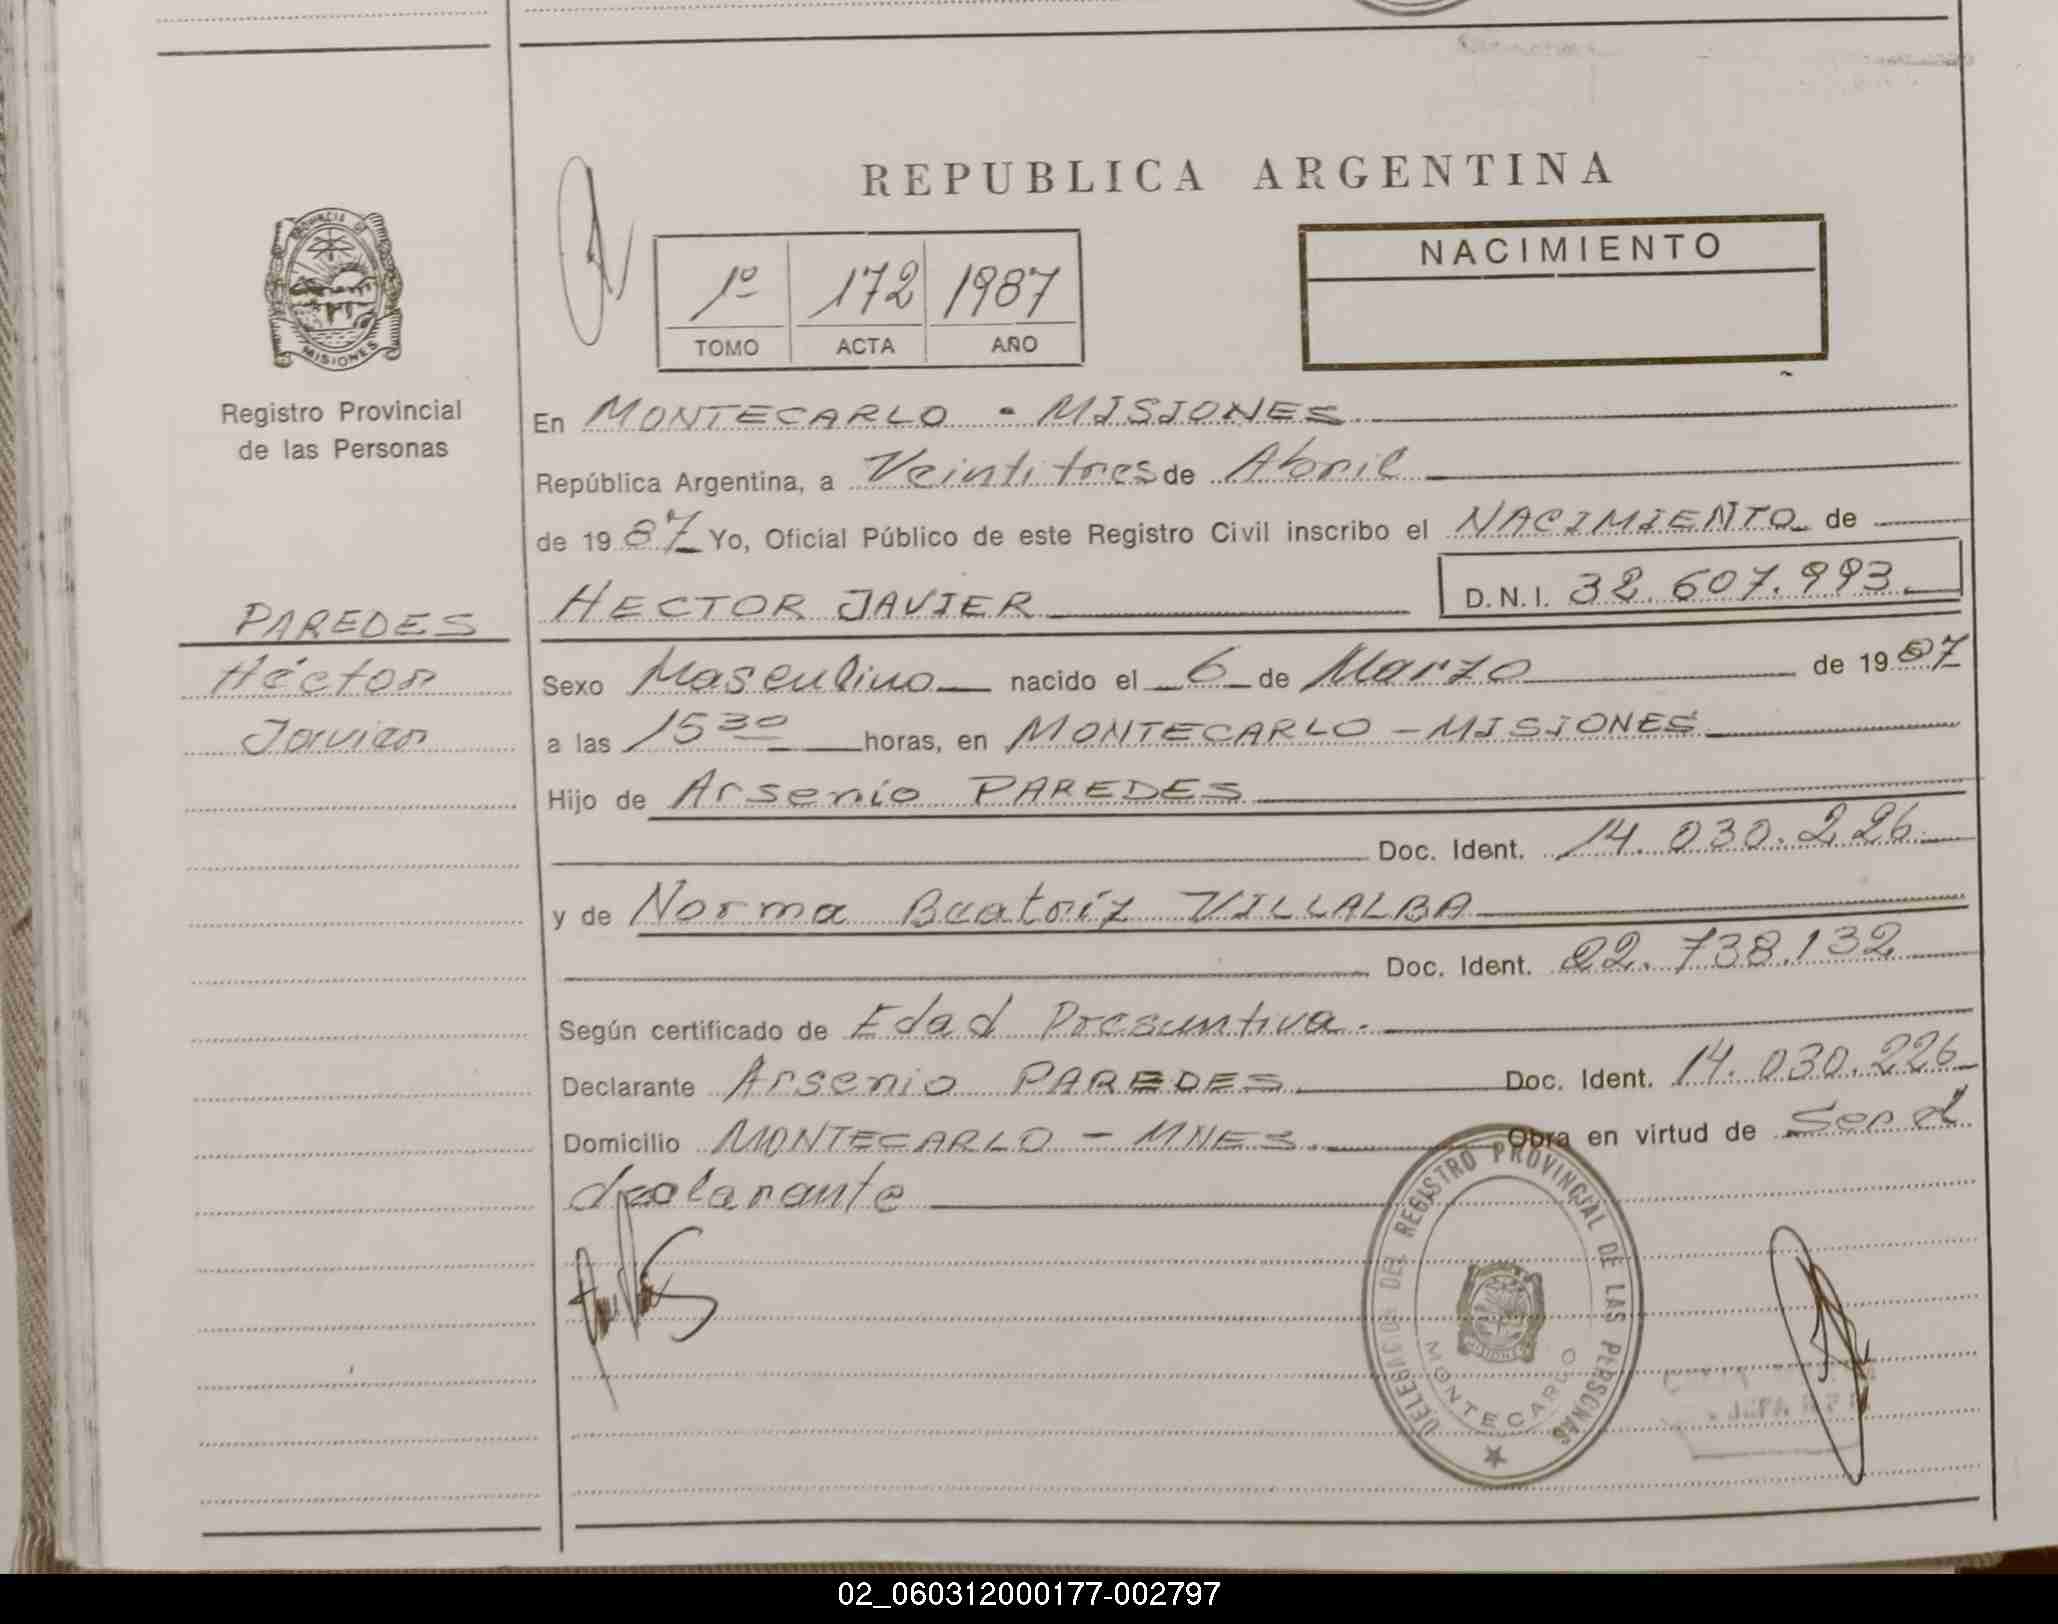 REPUBLICA ARGENTINA
PROVINCIA DE
MISIONES
Registro Provincial
de las Personas
1º 172 1987
TOMO ACTA AÑO
NACIMIENTO
En MONTECARLO - MISIONES
República Argentina, a Veintitres de Abril
de 1987 Yo, Oficial Público de este Registro Civil inscribo el NACIMIENTO de
HECTOR JAVIER D.N.I. 32.607.993.
PAREDES
Héctor
Javier
Sexo Masculino nacido el 6 de Marzo de 1987
a las 15 30 horas, en MONTECARLO - MISIONES
Hijo de Arsenio PAREDES
Doc. Ident. 14.030.226
y de Norma Beatríz VILLALBA
Doc. Ident. 22.738.132
Según certificado de Edad Presuntiva.
Declarante Arsenio PAREDES Doc. Ident. 14.030.226
Domicilio MONTECARLO - MNES. Obra en virtud de Ser el
declarante
DELEGACION DEL REGISTRO PROVINCIAL DE LAS PERSONAS
MISIONES
MONTECARLO
02_060312000177-002797